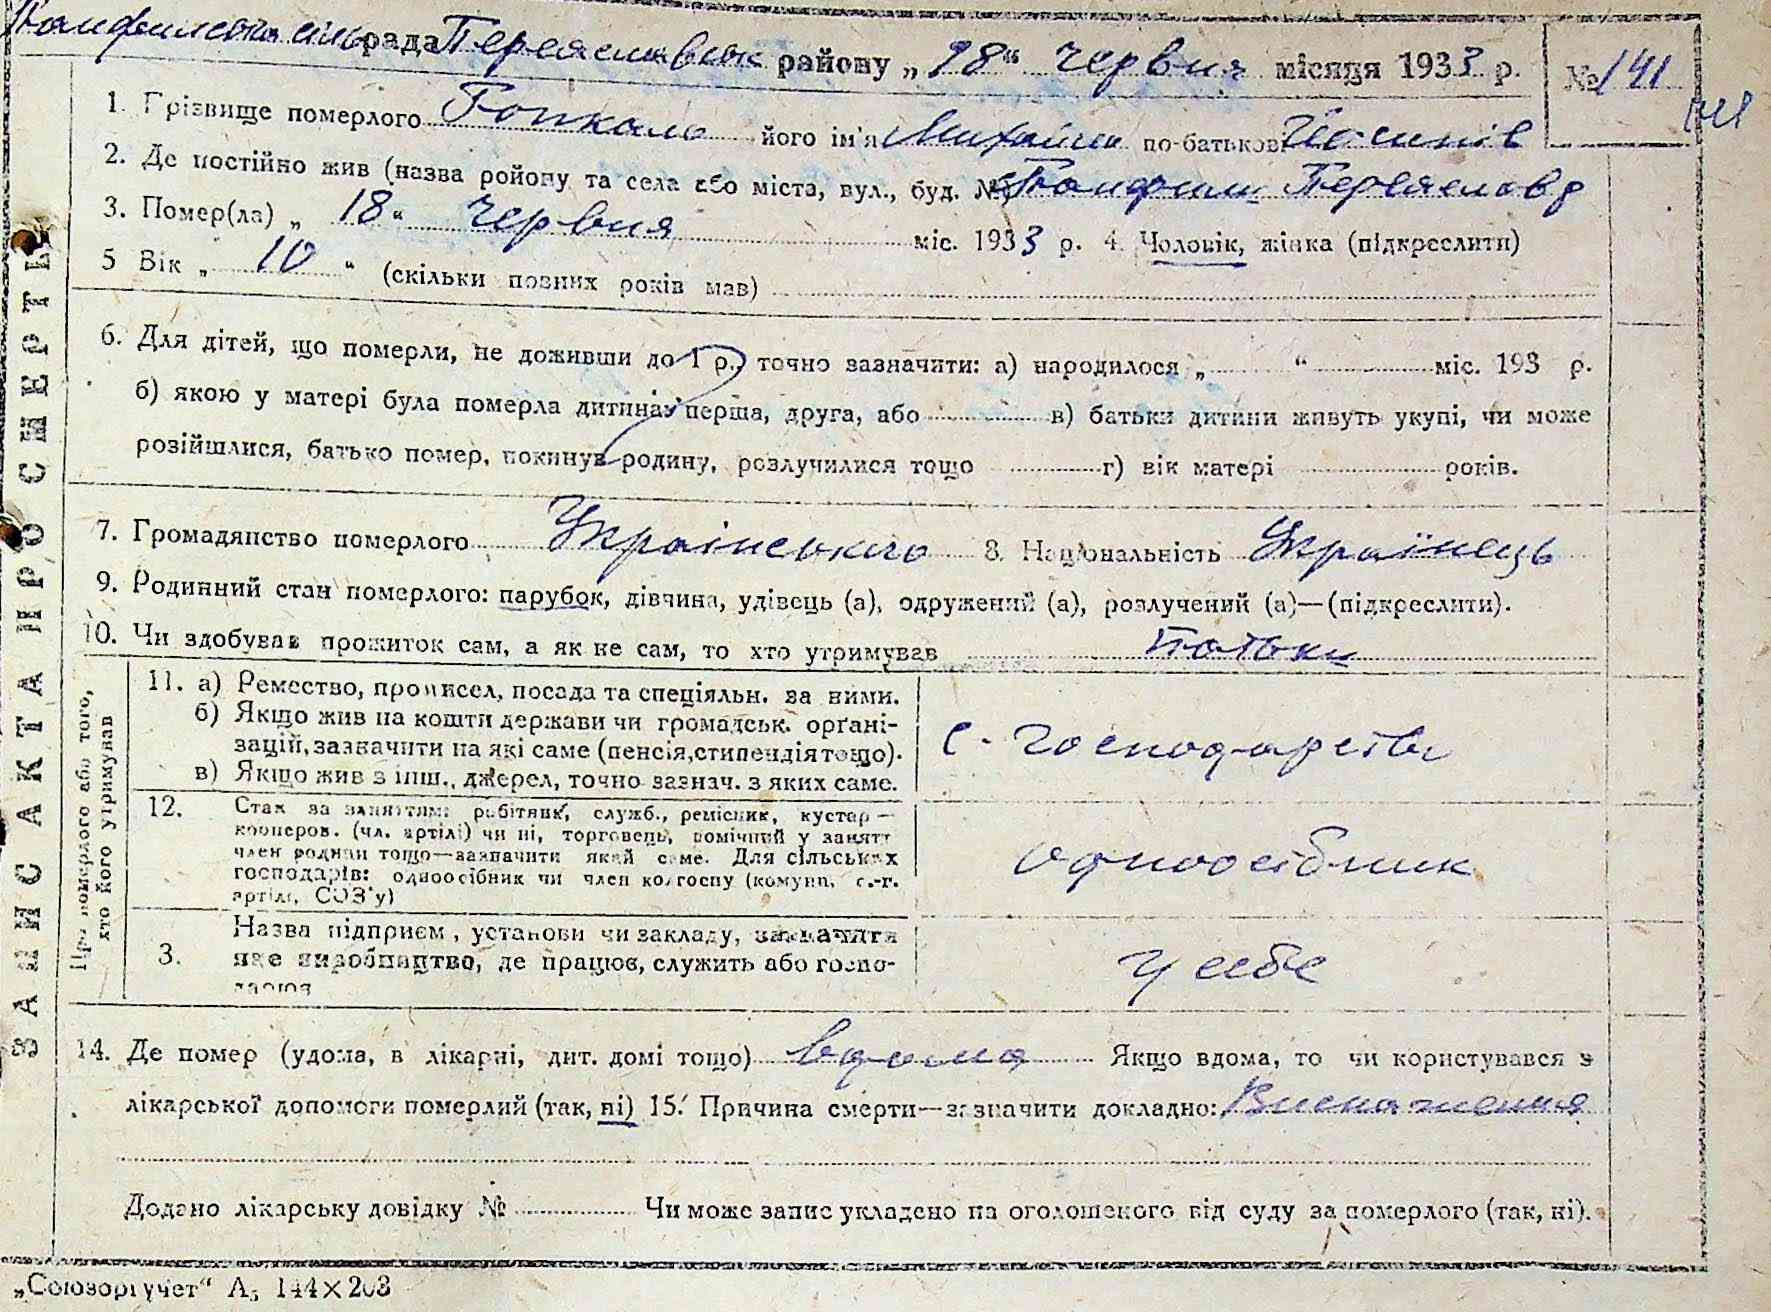 Панфилська сільрада Переяславськ району „18“ червня місяця 1933 р. № 141
141
1. Прізвище померлого його ім'я Михайло по-батькові Йосипів
2. Де постійно жив (назва ройону та села або міста, вул., буд. №) Панфили Переяслав р
3. Помер(ла) „18“ червня міс. 1933 р. 4. Чоловік, жінка (підкреслити)
5 Вік „10“ (скільки повних років мав)
6. Для дітей, що померли, не доживши до 1 р., точно зазначити: а) народилося „ “ міс. 193 р.
б) якою у матері була померла дитина: перша, друга, або в) батьки дитини живуть укупі, чи може
розійшлися, батько помер, покинув родину, розлучилися тощо г) вік матері років.
7. Громадянство померлого Українського 8. Національність Українець
9. Родинний стан померлого: парубок, дівчина, удівець (а), одружений (а), розлучений (а)—(підкреслити).
10. Чи здобував прожиток сам, а як не сам, то хто утримував батьки
ЗАПИС АКТА ПРО СМЕРТЬ
Про померлого або того, хто його утримував
11. а) Ремество, промисел, посада та спеціяльн. за ними.
б) Якщо жив на кошти держави чи громадськ. орґані-
зацій, зазначити на які саме (пенсія, стипендія тощо).
в) Якщо жив з інш., джерел, точно зазнач. з яких саме.
с. господарства
12. Стан за заняттям: робітник, служб., ремісник, кустар—
кооперов. (чл. артілі) чи ні, торговець, помічний у занятт
член родини тощо—зазначити який саме. Для сільських
господарів: одноосібник чи член колгоспу (комуни, с.-г.
артілі, СОЗ'у)
одноосібник
3. Назва підприєм, установи чи закладу, зазначити
яке виробництво, де працює, служить або госпо-
дарює
у себе
14. Де помер (удома, в лікарні, дит. домі тощо) вдома Якщо вдома, то чи користувався з
лікарської допомоги померлий (так, ні) 15. Причина смерти—зазначити докладно: Виснаження
Додано лікарську довідку № Чи може запис укладено на оголошеного від суду за померлого (так, ні).
„Союзоргучет“ А5 144×203